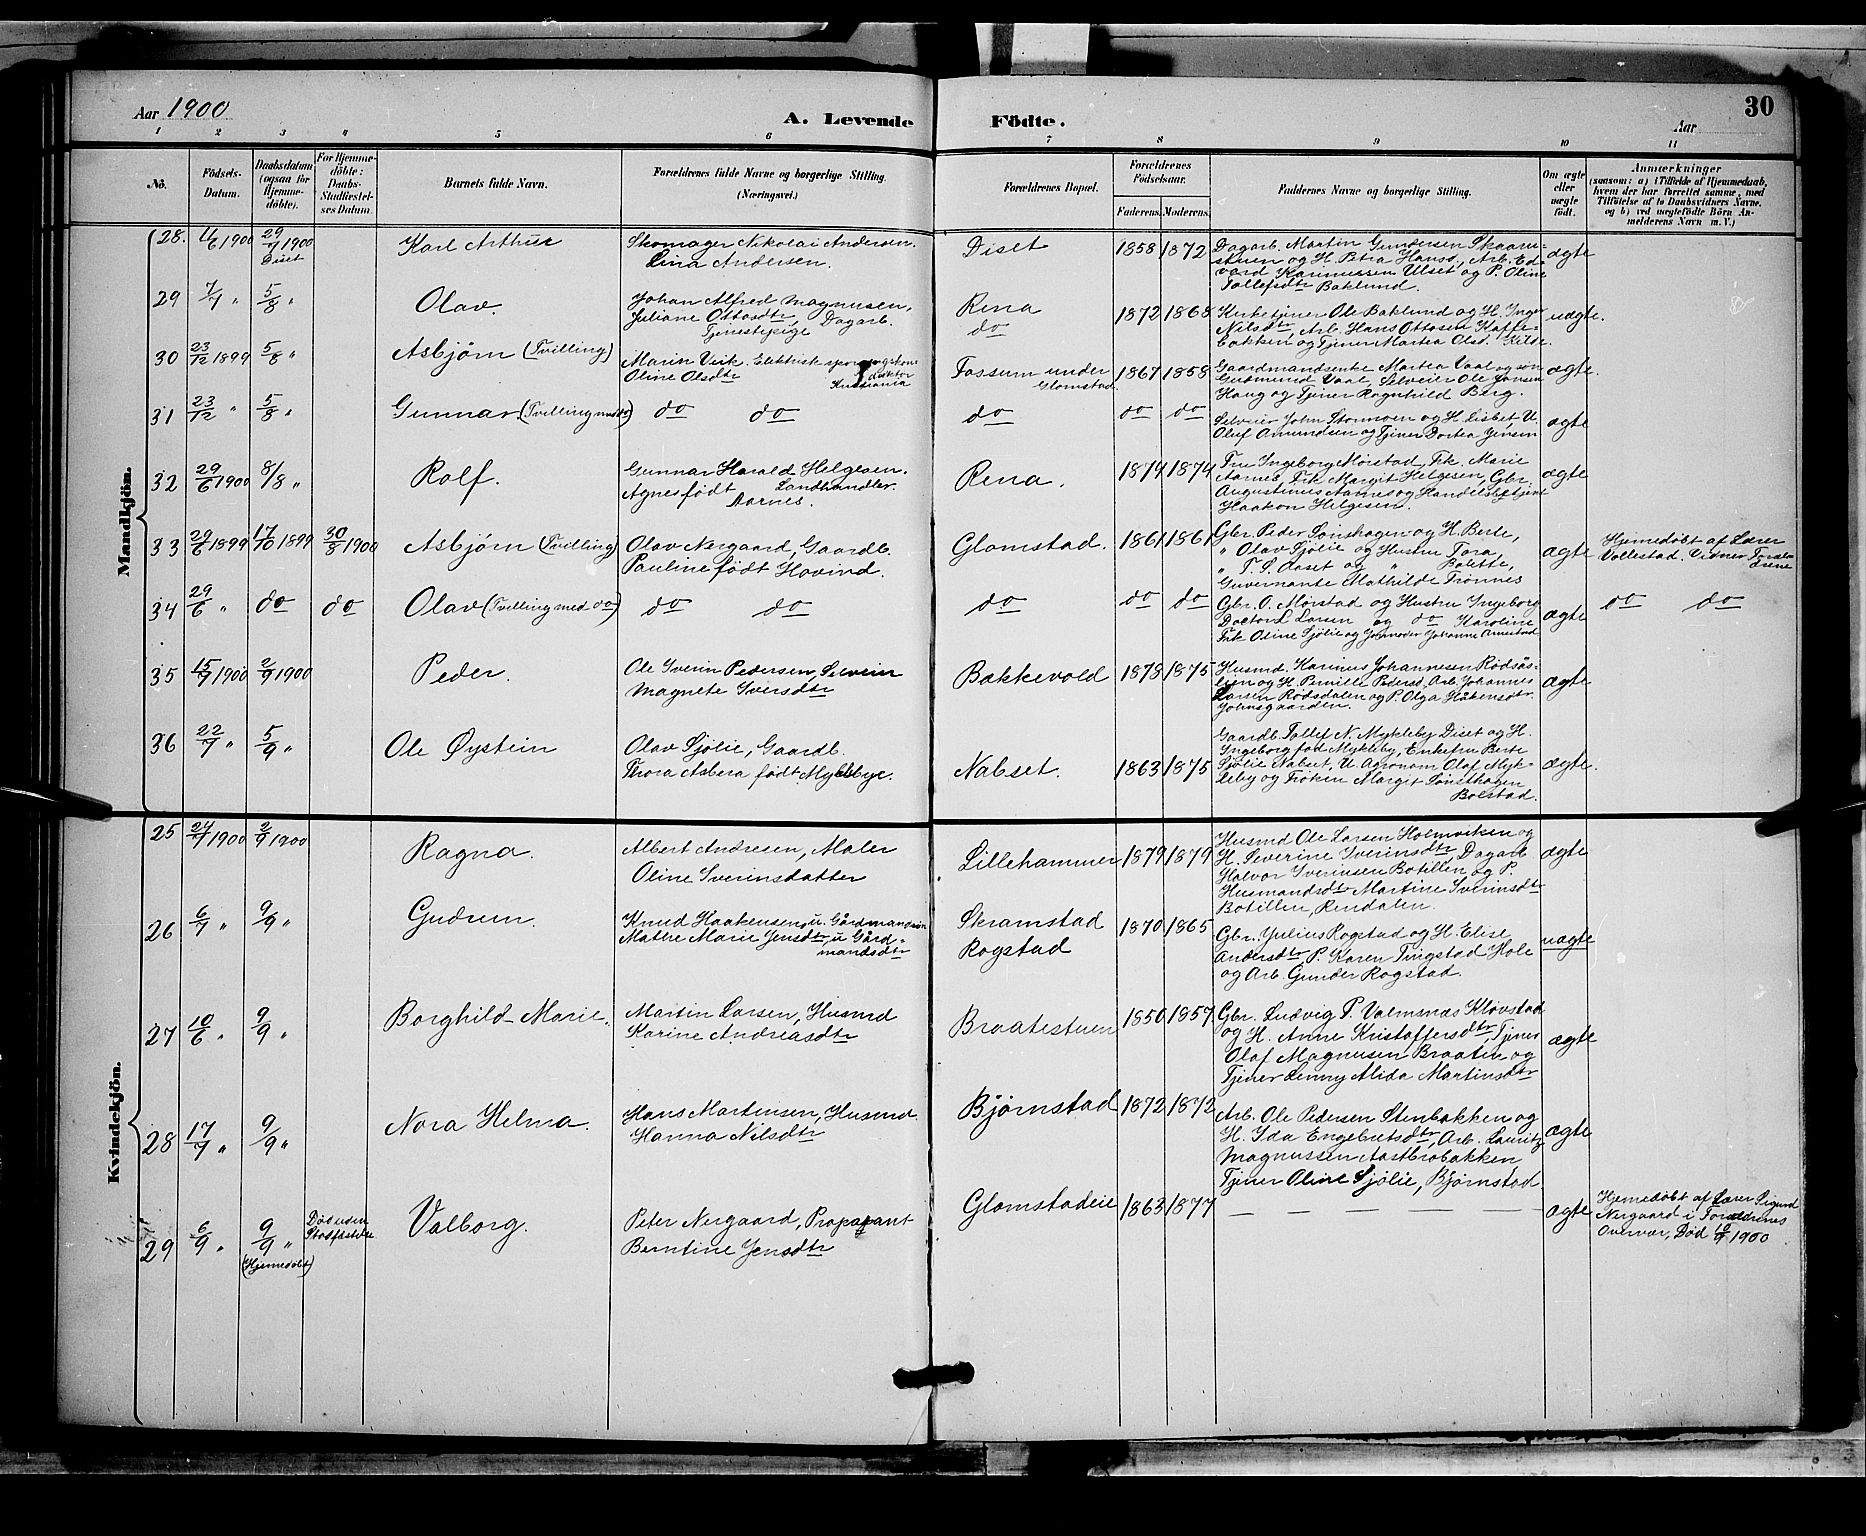 Aar 1900
A. Levende Födte.
Aar
30
1 2 3 4 5 6 7 8 9 10 11
No.
Födsels-
Datum.
Daabsdatum
(ogsaa for
Hjemme-
döbte).
For Hjemme-
döbte:
Daabs-
Stadfæstel-
ses Datum.
Barnets fulde Navn.
Forældrenes fulde Navne og borgerlige Stilling.
(Næringsvei.)
Forældrenes Bopæl.
Forældrenes
Födselsaar.
Faderens. Moderens.
Faddernes Navne og borgerlige Stilling.
Om ægte
eller
uægte
født.
Anmærkninger
(saasom: a) i Tilfælde af Hjemmedaab,
hvem der har forrettet samme, med
Tilföielse af to Daabsvidners Navne.
og b) ved uægtefödte Börn An-
melderens Navn m. V.)
Mandkjön.
28. 11/6 1900 29/7 1900
Diset
Karl Arthur
Skomager Nikolai Andersen.
Lina Andersen.
Diset
1858 1872
Dagarb. Martin Gundersen Skaam-
stuen og H. Petra Hansd., Arb. Ed-
vard Rasmussen Ulset og P. Oline
Tollefsdtr Baklund.
ægte
29 7/7 " 5/8 "
Olav.
Johan Alfred Magnusen,
Juliane Ottosdtr, Dagarb.
Tjenestepige
Rena
do
1872 1868
Kirketjener Ole Baklund og H. Inger
Nilsdtr, Arb. Hans Ottosen Kaffe-
bakken og Tjener Martea Olsd. Kilde.
uægte.
30 23/12 1899 5/8 "
Asbjørn (Tvilling)
Marin Veik, Elektrisk sporvogskon-
duktør
Oline Olsdtr Kristiania
Fossum under
Glomstad.
1867 1858
Gaardmandsenke Martea Vaal og søn
Gudmund Vaal, Selveier Ole Jonsen
Haug og Tjener Ragnhild Berg.
ægte.
31 23/12 " 5/8 "
Gunnar (Tvilling med do)
do do
do
do do
Selveier John Stormoen og H. Lisbet, U.
Oluf Amundsen og Tjener Dortea Jensen
ægte
32 29/6 1900 8/8 "
Rolf.
Gunnar Harald Helgesen.
Landhandler.
Agnes født Aarnes.
Rena.
1879 1874
Fru Ingeborg Mørstad, Frk. Marie
Aarnes, Frk. Margit Helgesen, Gbr.
Augustinus Aarnes og Handelsbetjent
Haakon Helgesen.
ægte
33 29/6 1899 17/10 1899 30/8 1900
Asbjørn (Tvilling)
Olav Nergaard, Gaardb.
Pauline født Hovind.
Glomstad.
1861 1861
Gbr. Peder Sønshagen og H. Berte,
" Olav Sjölie og Hustru Tora,
" T. S. Aaset og " Bolette,
Guvernante Mathilde Trønnes
ægte
Hjemedøbt af Lærer
Vollestad. Vidner Foræl-
drene
34 29/6 " do do
Olav (Tvilling med do)
do do
do
do do
Gbr. O. Mørstad og Hustru Ingeborg
Doctor L. Larsen og do Karoline
Frk. Oline Sjölie og Jordmoder Johanne Arnestad
ægte
do do
35 15/7 1900 2/9 1900
Peder.
Ole Iverin Pedersen, Selveier
Magnete Iversdtr
Bakkevold
1878 1875
Husmd. Karinus Johannesen Rødsås-
lien og H. Pernille Pedersd. Arb. Johannes
Larsen Rødsdalen og P. Olga Håkensdtr.
Johnsgaarden.
ægte
36 22/7 " 5/9 "
Ole Øystein
Olav Sjölie, Gaardb.
Thora Asbera født Myklebye.
Nabset.
1863 1875
Gaardb. Tollef N. Mykleby Diset og H.
Ingeborg fød Mykleby, Enkefru Berte
Sjölie Nabset, U. Agronom Olaf Myk-
leby og Frøken Margit Sønsthagen
Bolstad.
ægte.
Kvindekjön.
25 24/7 1900 2/9 1900
Ragna.
Albert Andresen, Maler
Oline Sverinsdatter
Lillehammer
1879 1879
Husmd Ole Larsen Holmviken og
H. Severine Sverinsdtr, Dagarb
Halvor Sverinsen Botillen og P.
Husmandsdtr Martine Sverinsdtr
Botillen, Rendalen.
ægte
26 6/7 " 9/9 "
Gudrun.
Knud Haakensen, u. Gårdmandsøn
Mathe Marie Jensdtr, u Gård-
mandsdtr
Skramstad
Rogstad
1870 1865
Gbr. Julius Rogstad og H. Elise
Andersdtr P. Karen Tingstad Hole
og Arb. Gunder Rogstad.
uægte
27 10/6 " 9/9 "
Borghild Marie.
Martin Larsen, Husmd
Karine Andreasdtr
Braatestuen
1850 1857
Gbr. Ludvig P. Valmsnæs Kløvstad
og H. Anne Kristoffersdtr, Tjener
Olaf Magnusen Braaten og
Tjener Lenny Alida Martinsdtr
ægte
28 17/7 " 9/9 "
Nora Helma.
Hans Martinsen, Husmd.
Hanna Nilsdtr
Bjørnstad
1872 1872
Arb. Ole Pedersen Stenbakken og
H. Ida Engebretsdtr, Arb. Lauritz
Magnussen Aastbrobakken
Tjener Oline Sjölie, Bjørnstad.
ægte
29 6/9 " 9/9 "
(Hjemedøbt)
Død uden
Stadfæstelse
Valborg.
Peter Nergaard, Proparant
Berntine Jensdtr
Glomstadeie
1863 1877
— — — — — — —
ægte
Hjemedøbt af Lærer Sigurd
Nergaard i Forældrenes
Overvær, Død 10/9 1900